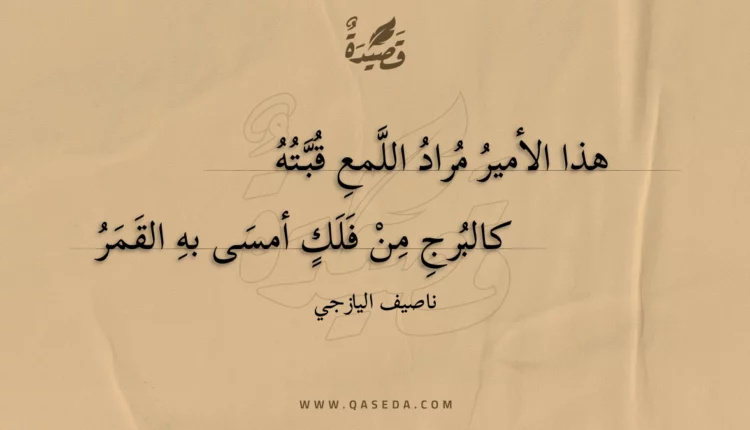 قَصِيْدَةٌ
هذا الأميرُ مُرادُ اللَّمعِ قُبَّتُهُ
كالبُرجِ مِنْ فَلَكٍ أمسَى بهِ القَمَرُ
ناصيف اليازجي
WWW.QASEDA.COM